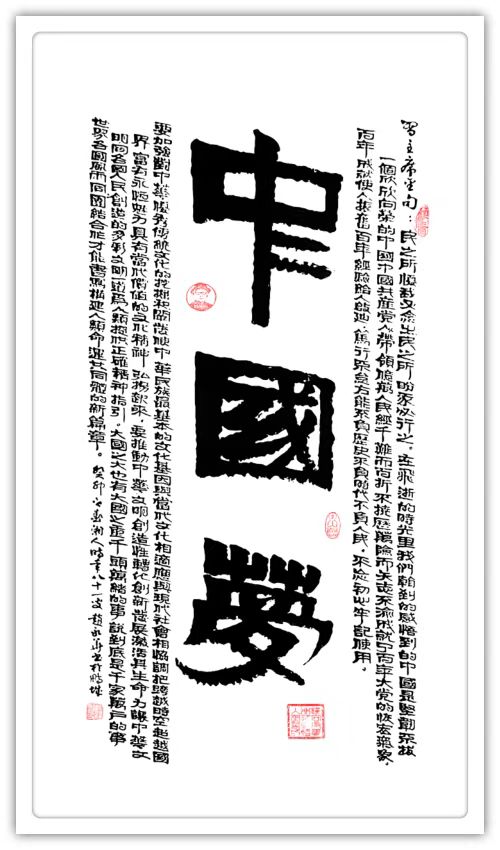 習主席金句：民之所憂我必念之民之所盼我必行之。在飛逝的時光里我們看到的感悟到的中國是堅韌不拔
一個欣欣向榮的中國中國共產黨人帶領億萬人民經千難而百折不撓歷萬險而矢志不渝成就了百年大黨的恢宏氣象，
百年成就使人振奮百年經驗給人啟迪，篤行不怠方能不負歷史不負時代不負人民，不忘初心牢記使用。
中國夢
要加強對中華優秀傳統文化的挖掘和闡發使中華民族最基本的文化基因與當代文化相適應與現代社會相協調把跨越時空超越國
界富有永恆魅力具有當代價值的文化精神弘揚起來，要推動中華文明創造性轉化創新發展激活其生命力讓中華文
明同各國人民創造的多彩文明道為人類提供正確精神指引。大國之大也有大國之重千頭萬緒的事，說到底是千家萬戶的事
世界各國風雨同團結合作才能書寫構建人類命運共同體的新篇章。癸卯 潮人時年八十一歲趙